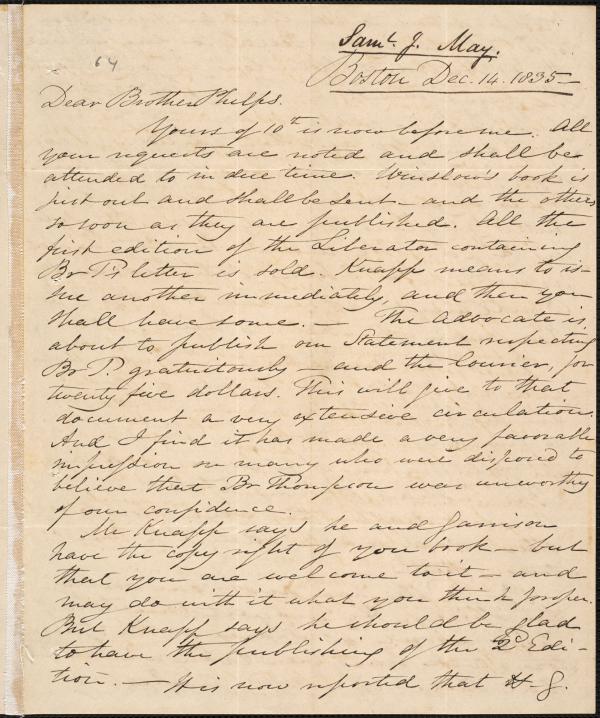 64
Saml. J. May.
Boston Dec. 14. 1835—
Dear Brother Phelps.
Yours of 10th is now before me. All
your requests are noted and shall be
attended to in due time. Winslow's book is
just out and shall be sent — and the others
so soon as they are published. All the
first edition of the Liberator containing
Br T's letter is sold. Knapp means to is-
sue another immediately, and then you
shall have some. — The Advocate is
about to publish our Statement respecting
Br T. gratuitously — and the Courier, for
twenty five dollars. This will give to that
document a very extensive circulation.
And I find it has made a very favorable
impression on many who were disposed to
believe that Br Thompson was unworthy
of our confidence.
Mr Knapp says he and Garrison
have the copy right of your book — but
that you are welcome to it — and
may do with it what you think proper.
But Knapp says he should be glad
to have the publishing of the 2d Edi-
tion. — It is now reported that H. G.